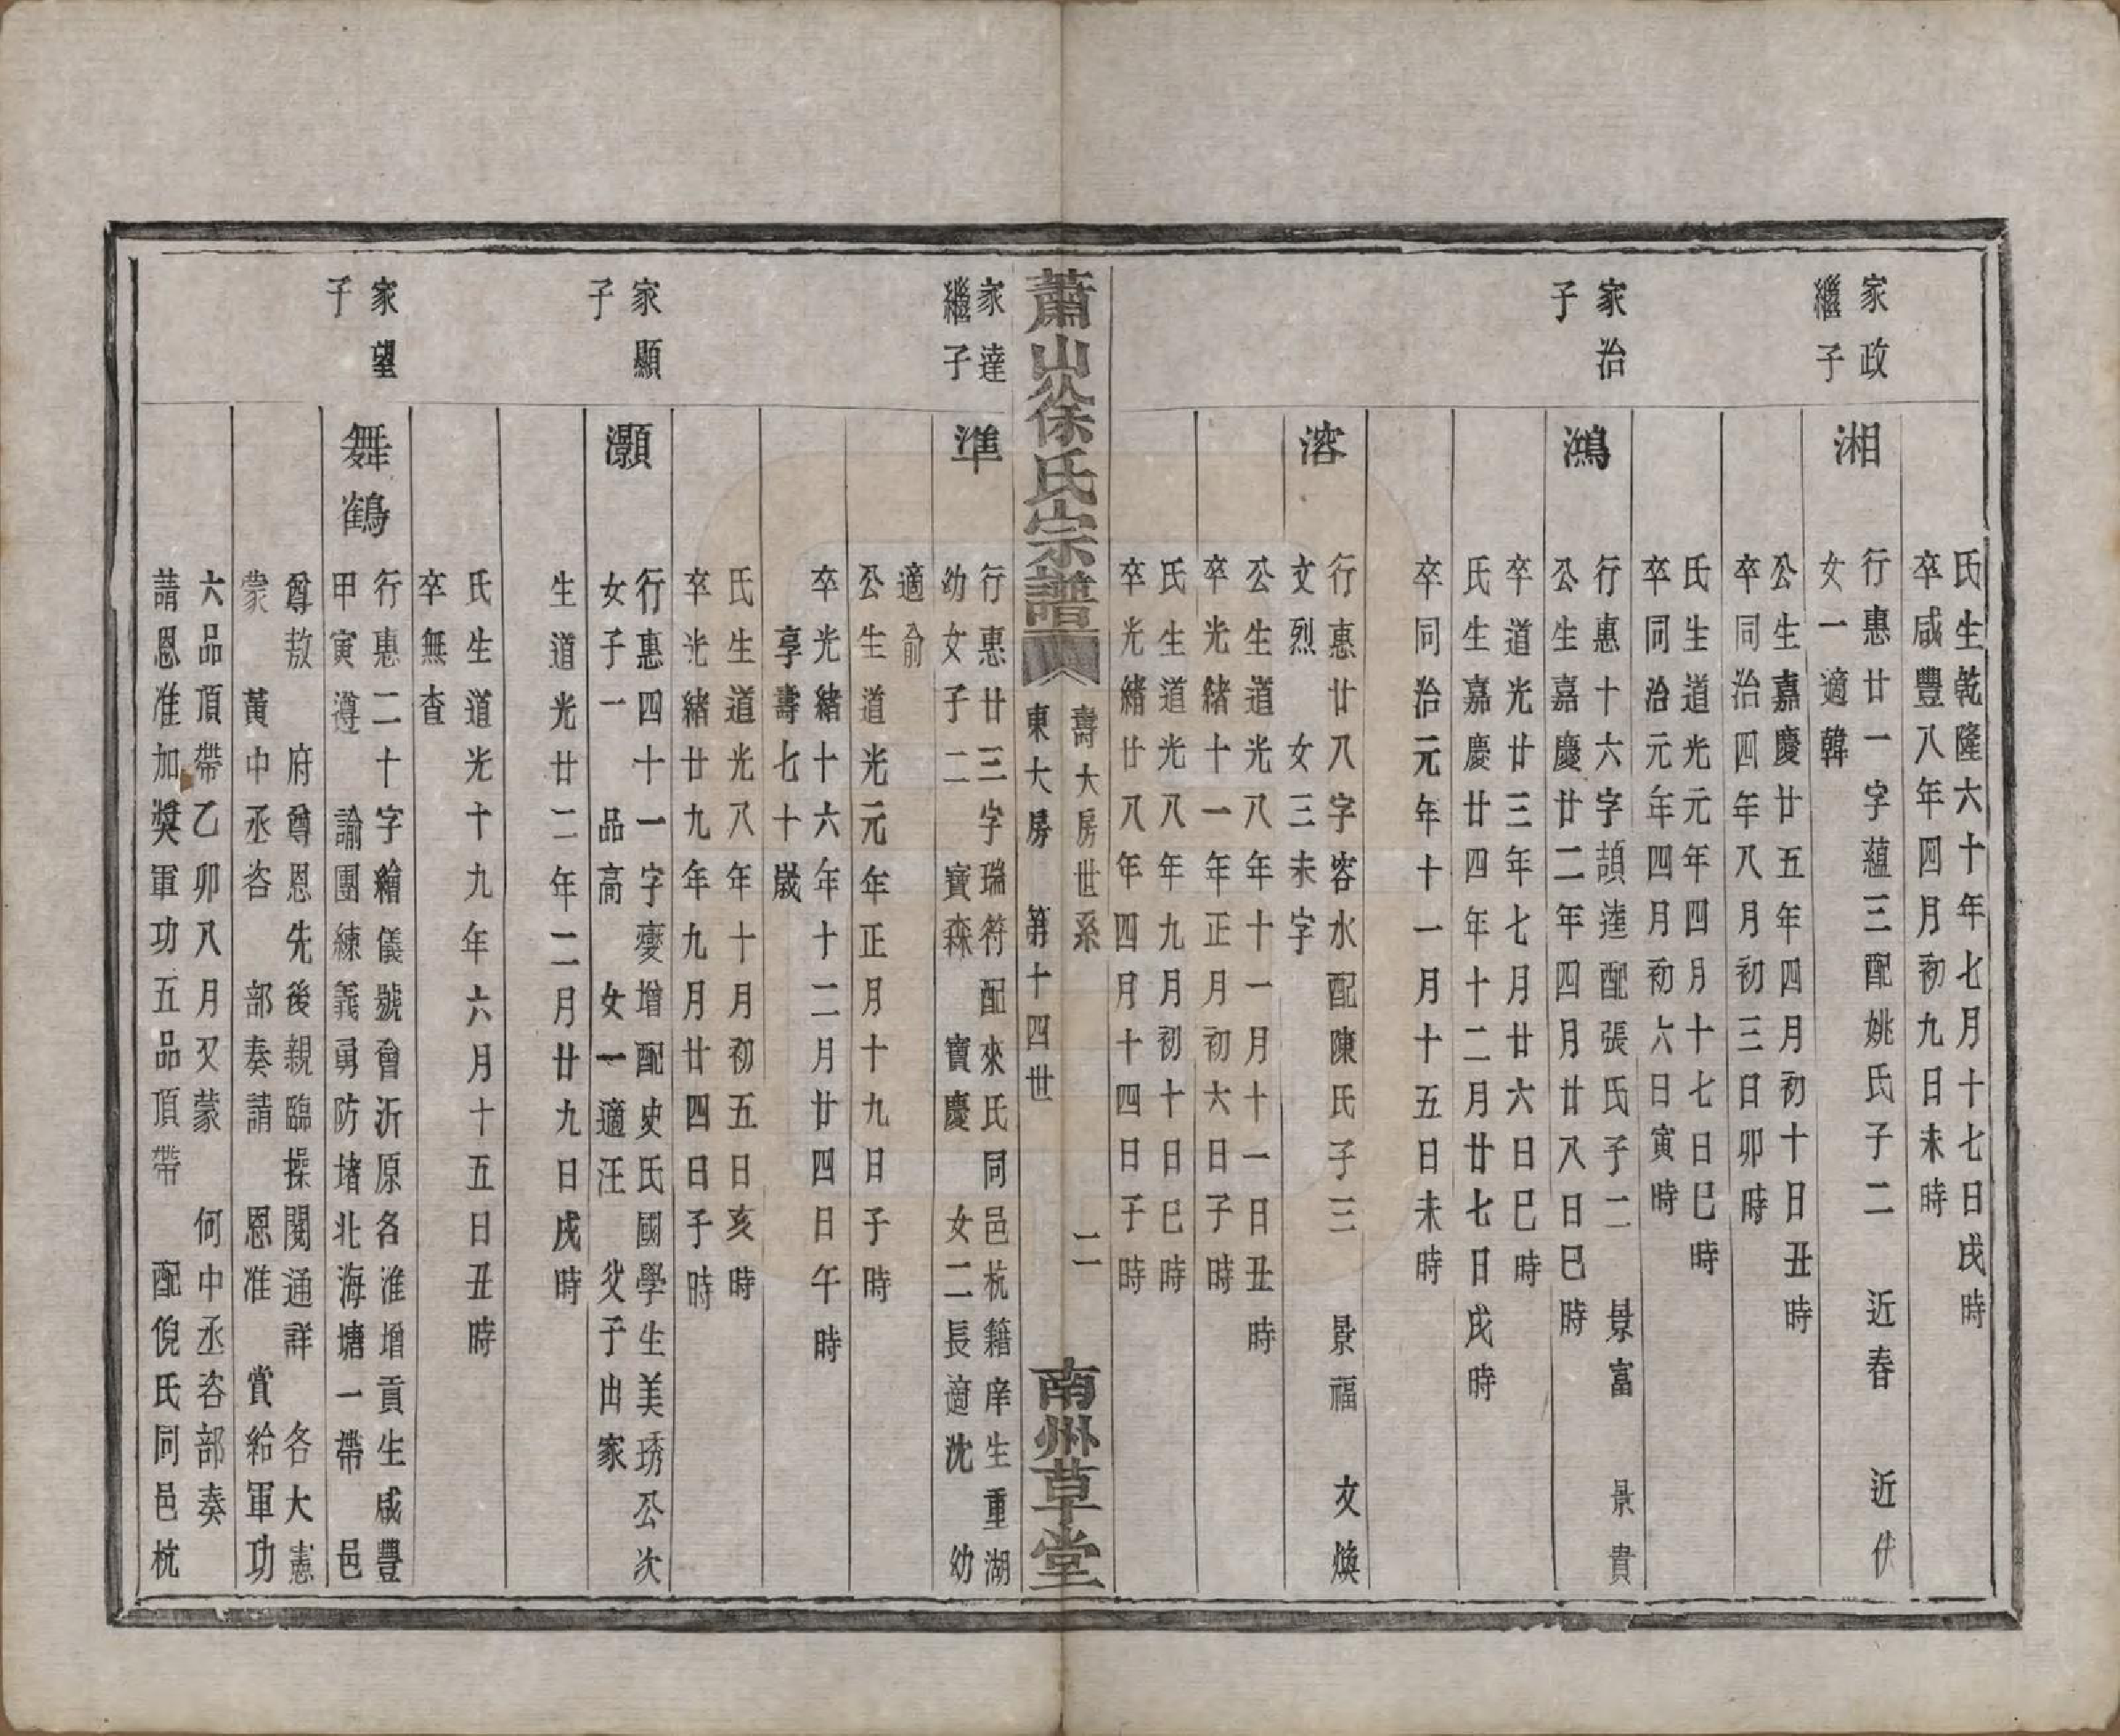 氏生乾隆六十年七月十七日戌時
卒咸豐八年四月初九日未時
家政
繼子
湘
行惠廿一字蘊三配姚氏子二 近春 近伏
女一適韓
公生嘉慶廿五年四月初十日丑時
卒同治四年八月初三日卯時
氏生道光元年四月十七日巳時
卒同治元年四月初六日寅時
家治
子
鴻
行惠十六字頡逵配張氏子二 景富 景貴
公生嘉慶廿二年四月廿八日巳時
卒道光廿三年七月廿六日巳時
氏生嘉慶廿四年十二月廿七日戌時
卒同治元年十一月十五日未時
溶
行惠廿八字容水配陳氏子三 景福 文煥
文烈 女三未字
公生道光八年十一月十一日丑時
卒光緒十一年正月初六日子時
氏生道光八年九月初十日巳時
卒光緒廿八年四月十四日子時
蕭山徐氏宗譜
壽大房世系 二
東大房 第十四世
南州草堂
家達
繼子
準
行惠廿三字瑞符配來氏同邑杭籍庠生重湖
幼女子二 寶森 寶慶 女二長適沈 幼
適俞
公生道光元年正月十九日子時
卒光緒十六年十二月廿四日午時
享壽七十歲
氏生道光八年十月初五日亥時
卒光緒廿九年九月廿四日子時
家顯
子
灝
行惠四十一字夔增配史氏國學生美琇公次
女子一 品高 女一適汪 父子出家
生道光廿二年二月廿九日戌時
氏生道光十九年六月十五日丑時
卒無查
家望
子
舞鶴
行惠二十字繪儀號曾沂原名淮增貢生咸豐
甲寅遵 諭團練義勇防堵北海塘一帶 邑
尊敖 府尊恩先後親臨操閱通詳 各大憲
蒙 黃中丞咨 部奏請 恩准 賞給軍功
六品頂帶乙卯八月又蒙 何中丞咨部奏
請恩准加獎軍功五品頂帶 配倪氏同邑杭